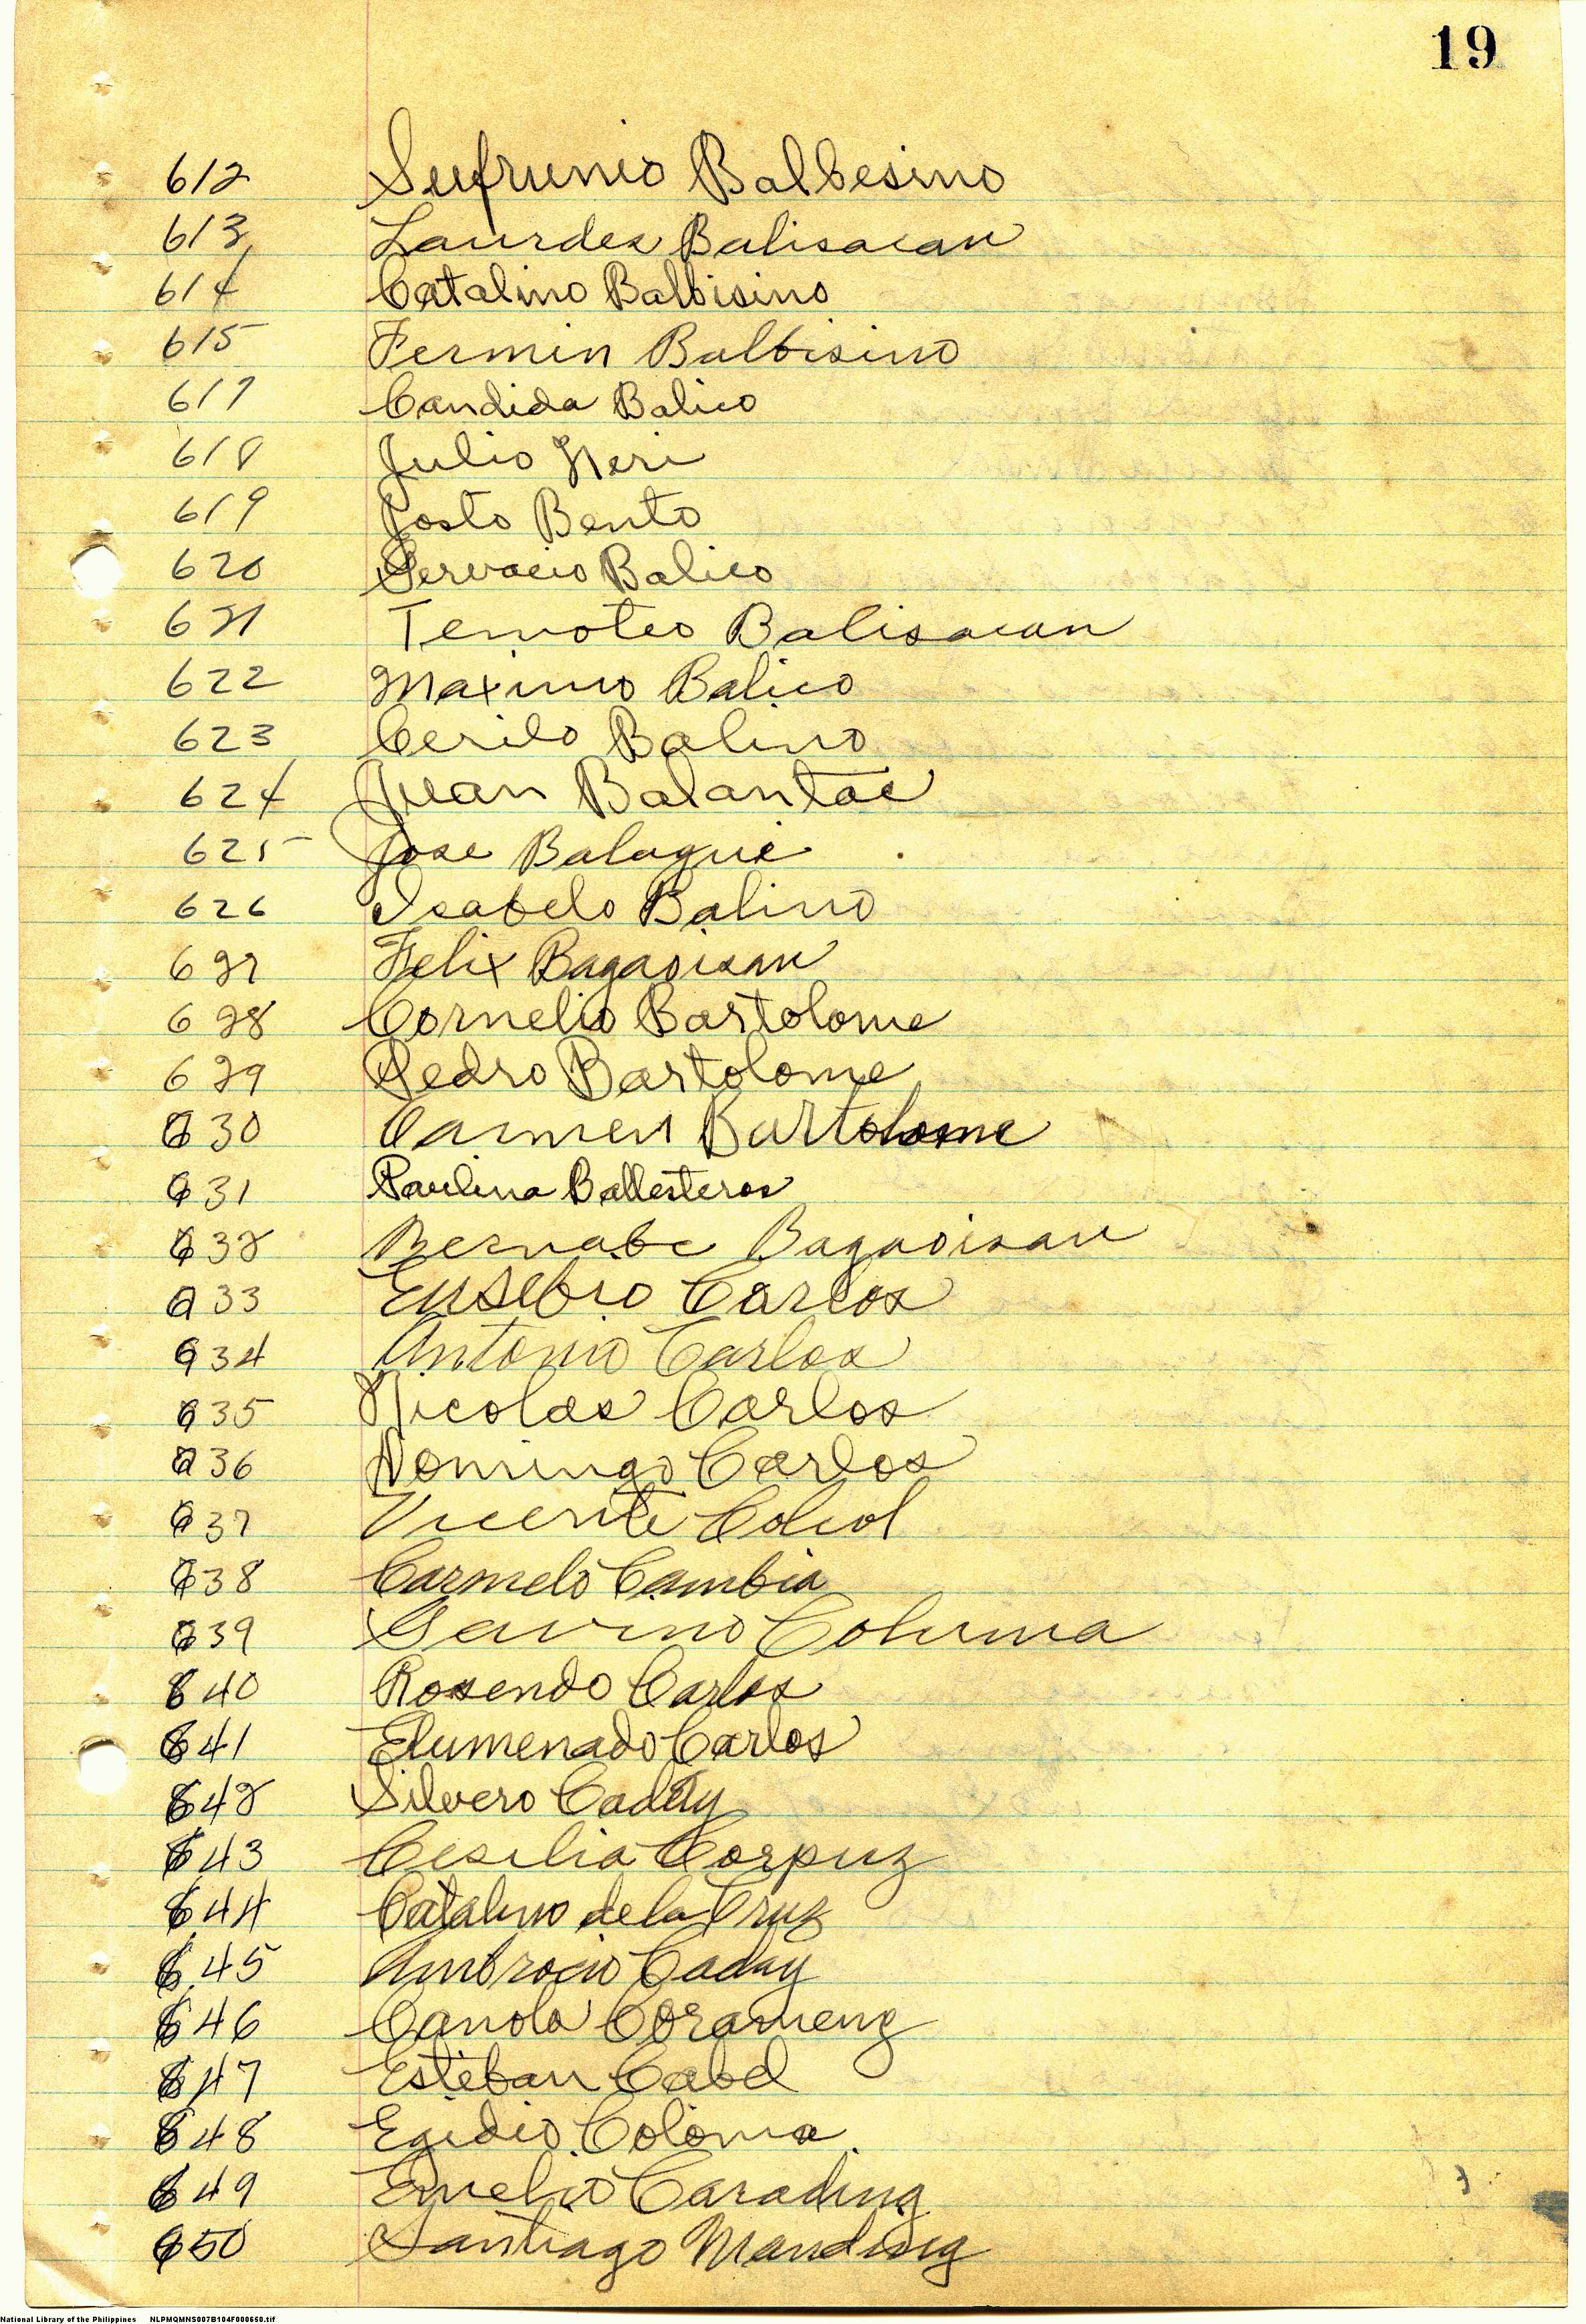 19
612 Sufrunio Balbesino
613 Laurdes Balisacan
614 Catalino Balbisino
615 Fermin Balbisino
617 Candida Balico
618 Julio Neri
619 Josto Bento
620 Servacio Balico
621 Temoteo Balisacan
622 Maximo Balico
623 Cerilo Balino
624 Juan Balantac
625 Jose Balague
626 Isabelo Balino
627 Felix Bagaoisan
628 Cornelio Bartolome
629 Pedro Bartolome
630 Carmen Bartolome
631 Paulina Ballesteros
632 Bernabe Bagaoisan
633 Eusebio Carlos
634 Antonio Carlos
635 Nicolas Carlos
636 Domingo Carlos
637 Vicente
638 Carmelo Cambia
639 Gavino Columa
640 Rosendo Carlos
641 Elumenado Carlos
642 Silvero
643 Cesilia Corpuz
644 Catalino de la Cruz
645 Ambrocio Caday
646
647 Esteban Cabel
648 Egidio Coloma
649 Emelio Carading
650 Santiago
National Library of the Philippines NLPMQMNS007B104F000650.tif